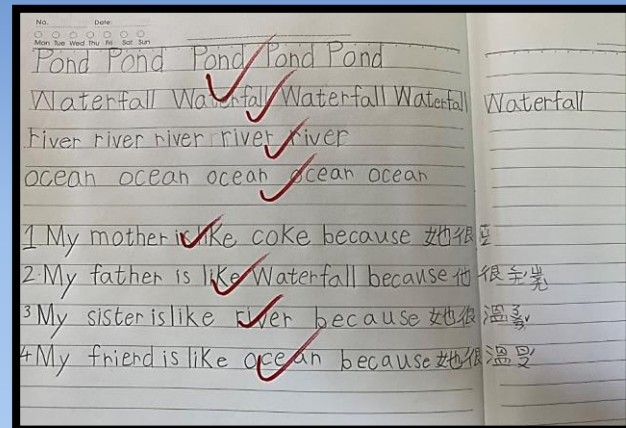 No. Date:
Mon Tue Wed Thu Fri Sat Sun
Pond Pond Pond Pond Pond
Waterfall Waterfall Waterfall Waterfall Waterfall
river river river river river
ocean ocean ocean ocean ocean
1 My mother is like coke because 她很
2. My father is like Waterfall because 他很
3 My sister is like river because 她很溫
4 My friend is like ocean because 她很溫